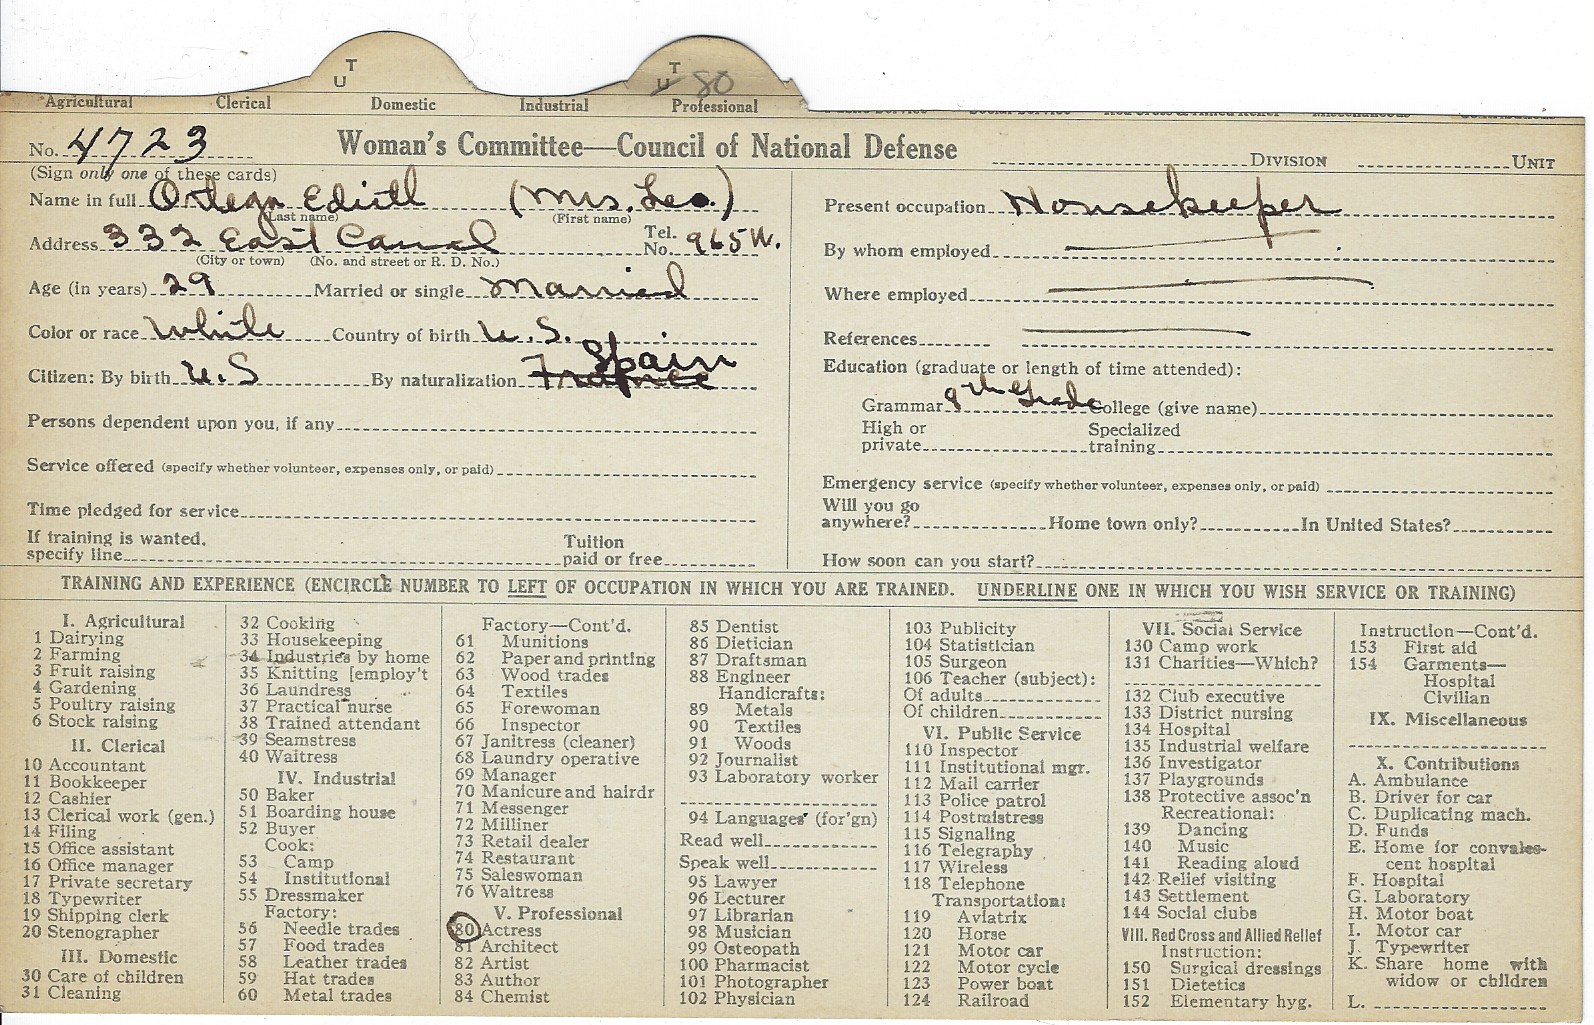 T
U
T
U 80
Agricultural Clerical Domestic Industrial Professional
No. 4723 Woman's Committee—Council of National Defense DIVISION UNIT
(Sign only one of these cards)
Name in full Ortega Edith (Mrs. Leo.)
(Last name) (First name)
Address 332 East Canal Tel. No. 965W.
(City or town) (No. and street or R. D. No.)
Age (in years) 29 Married or single Married
Color or race White Country of birth U.S.
Citizen: By birth U.S By naturalization France Spain
Persons dependent upon you, if any
Service offered (specify whether volunteer, expenses only, or paid)
Time pledged for service
If training is wanted, specify line Tuition paid or free
Present occupation Housekeeper
By whom employed
Where employed
References
Education (graduate or length of time attended):
Grammar 8th Grade College (give name)
High or private Specialized training
Emergency service (specify whether volunteer, expenses only, or paid)
Will you go anywhere? Home town only? In United States?
How soon can you start?
TRAINING AND EXPERIENCE (ENCIRCLE NUMBER TO LEFT OF OCCUPATION IN WHICH YOU ARE TRAINED. UNDERLINE ONE IN WHICH YOU WISH SERVICE OR TRAINING)
I. Agricultural
1 Dairying
2 Farming
3 Fruit raising
4 Gardening
5 Poultry raising
6 Stock raising
II. Clerical
10 Accountant
11 Bookkeeper
12 Cashier
13 Clerical work (gen.)
14 Filing
15 Office assistant
16 Office manager
17 Private secretary
18 Typewriter
19 Shipping clerk
20 Stenographer
III. Domestic
30 Care of children
31 Cleaning
32 Cooking
33 Housekeeping
34 Industries by home
35 Knitting [employ't
36 Laundress
37 Practical nurse
38 Trained attendant
39 Seamstress
40 Waitress
IV. Industrial
50 Baker
51 Boarding house
52 Buyer
Cook:
53 Camp
54 Institutional
55 Dressmaker
Factory:
56 Needle trades
57 Food trades
58 Leather trades
59 Hat trades
60 Metal trades
Factory—Cont'd.
61 Munitions
62 Paper and printing
63 Wood trades
64 Textiles
65 Forewoman
66 Inspector
67 Janitress (cleaner)
68 Laundry operative
69 Manager
70 Manicure and hairdr
71 Messenger
72 Milliner
73 Retail dealer
74 Restaurant
75 Saleswoman
76 Waitress
V. Professional
80 Actress
81 Architect
82 Artist
83 Author
84 Chemist
85 Dentist
86 Dietician
87 Draftsman
88 Engineer
Handicrafts:
89 Metals
90 Textiles
91 Woods
92 Journalist
93 Laboratory worker
94 Languages (for'gn)
Read well
Speak well
95 Lawyer
96 Lecturer
97 Librarian
98 Musician
99 Osteopath
100 Pharmacist
101 Photographer
102 Physician
103 Publicity
104 Statistician
105 Surgeon
106 Teacher (subject):
Of adults
Of children
VI. Public Service
110 Inspector
111 Institutional mgr.
112 Mail carrier
113 Police patrol
114 Postmistress
115 Signaling
116 Telegraphy
117 Wireless
118 Telephone
Transportation:
119 Aviatrix
120 Horse
121 Motor car
122 Motor cycle
123 Power boat
124 Railroad
VII. Social Service
130 Camp work
131 Charities—Which?
132 Club executive
133 District nursing
134 Hospital
135 Industrial welfare
136 Investigator
137 Playgrounds
138 Protective assoc'n
Recreational:
139 Dancing
140 Music
141 Reading aloud
142 Relief visiting
143 Settlement
144 Social clubs
VIII. Red Cross and Allied Relief
Instruction:
150 Surgical dressings
151 Dietetics
152 Elementary hyg.
Instruction—Cont'd.
153 First aid
154 Garments—
Hospital
Civilian
IX. Miscellaneous
X. Contributions
A. Ambulance
B. Driver for car
C. Duplicating mach.
D. Funds
E. Home for convales-
cent hospital
F. Hospital
G. Laboratory
H. Motor boat
I. Motor car
J. Typewriter
K. Share home with
widow or children
L.